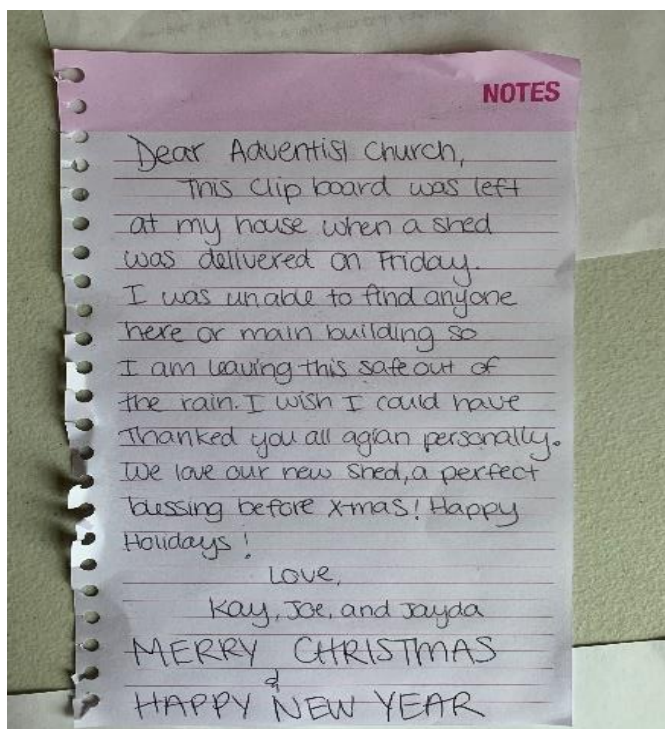 NOTES
Dear Adventist Church,
This Clip board was left
at my house when a shed
was delivered on Friday.
I was unable to find anyone
here or main building so
I am leaving this safe out of
the rain. I wish I could have
Thanked you all agian personally.
We love our new Shed, a perfect
blessing before X-mas! Happy
Holidays!
Love,
Kay, Joe, and Jayda
MERRY CHRISTMAS
&
HAPPY NEW YEAR